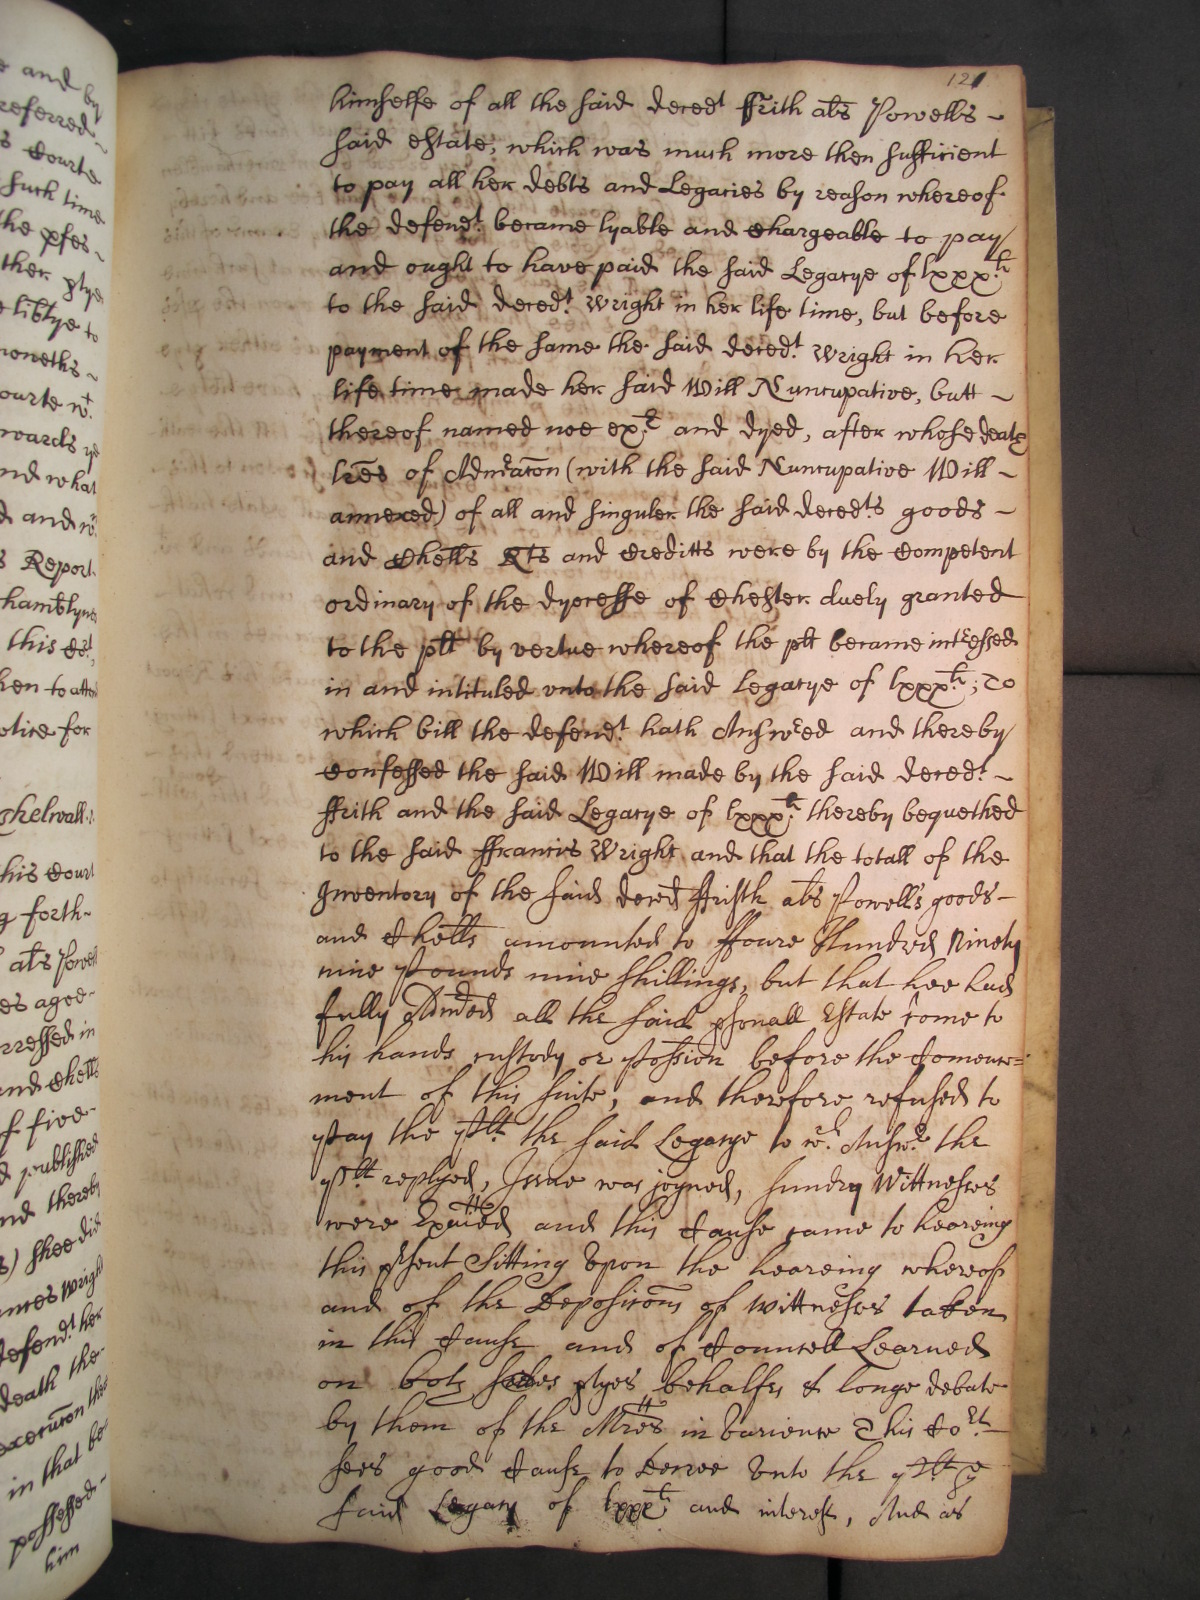 e and by
referred
s Courte
such time
the pſes
ther ptye
e libtye to
moneths
ourte wt
wards ye
nd what
d and
s Report
hamblyns
this Cot,
hen to
otice for
Shelwall
his Court
g forth
als Powell
es aged
rressed in
and Chells
of five
d published
nd thereby
s) shee did
ances Wright
defendt her
death the
execucon
in that be
possessed
him
121
himselfe of all the said decedt ffrith als Powells
said estate, which was much more then sufficient
to pay all her debts and Legacies by reason whereof
the defendt. became lyable and Chargeable to pay
and ought to have paid the said Legacye of lxxxli
to the said decedt. Wright in her life time, but before
payment of the same the said decedt. Wright in her
life time made her said Will Nuncupative, butt
thereof named noe exr and dyed, after whose death
lres of Admđacon (with the said Nuncupative Will
annexed) of all and singuler the said decedts goods
and Chells Rts and Creditts were by the Competent
ordinary of the dyocesse of Chester duely granted
to the plt by vertue whereof the plt became intressed
in and intituled vnto the said Legacye of lxxxli; To
which bill the defendt. hath Answed and thereby
Confessed the said Will made by the said decedt.
ffrith and the said Legacye of lxxxli thereby bequethed
to the said ffrancis Wright and that the totall of the
Inventory of the said deced ffristh als Powell's goods
and Chells amounted to ffoure Hundred Ninety
nine Pounds nine shillings, but that hee had
fully Admđed all the said psonall Estate Come to
his hands custody or Possion before the Comence=
ment of this suite, and therefore refused to
Pay the Plt the said Legacye to wch. Answr the
Plt replyed, Issue was joyned, sundry Wittnesses
were Exaied and this Cause came to heareing
this psent Sitting Vpon the heareing whereof
and of the Deposicons of Wittnesses taken
in this Cause and of Councell Learned
on both sides ptyes behalfes & longe debate
by them of the Mres in Varience This Cort
sees good Cause to Decree Vnto the Plt ye
said Legacy of lxxxli and interest, And as